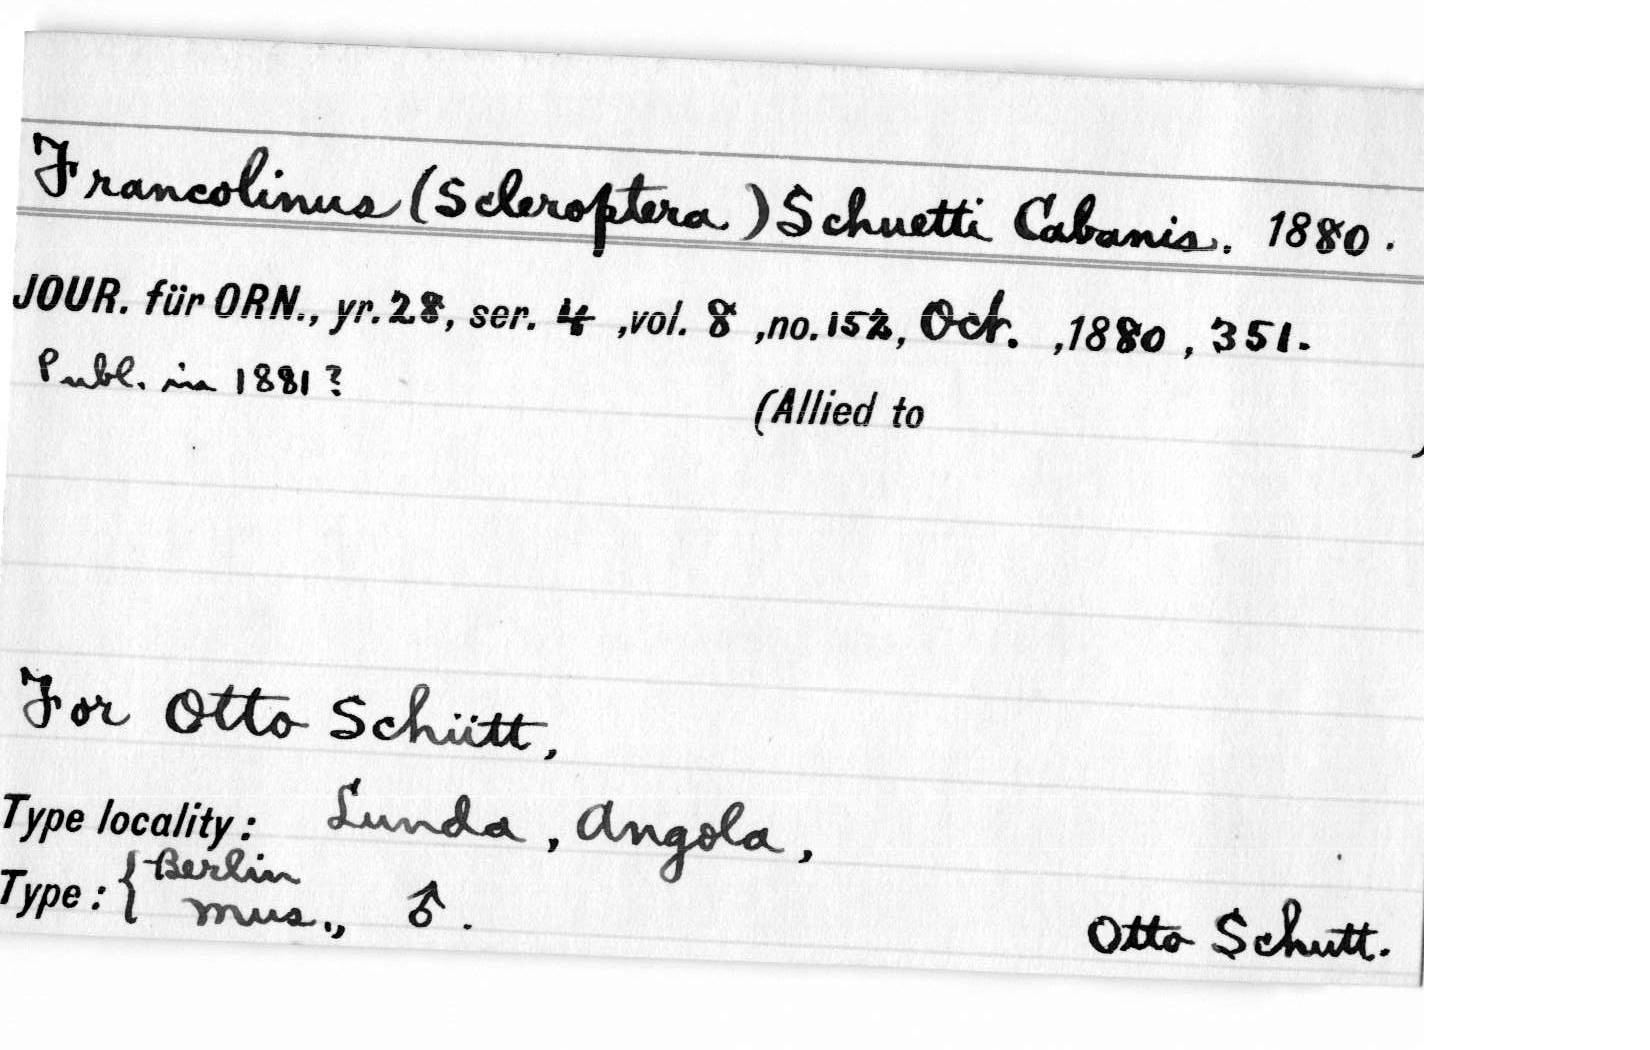 Francolinus (Scleroptera) Schuetti Cabanis. 1880.
JOUR. für ORN., yr. 28, ser. 4, vol. 8, no. 152, Oct., 1880, 351.
Publ. in 1881?
(Allied to )
For Otto Schütt,
Type locality: Lunda, Angola,
Type: { Berlin
Mus., ♂.
Otto Schutt.